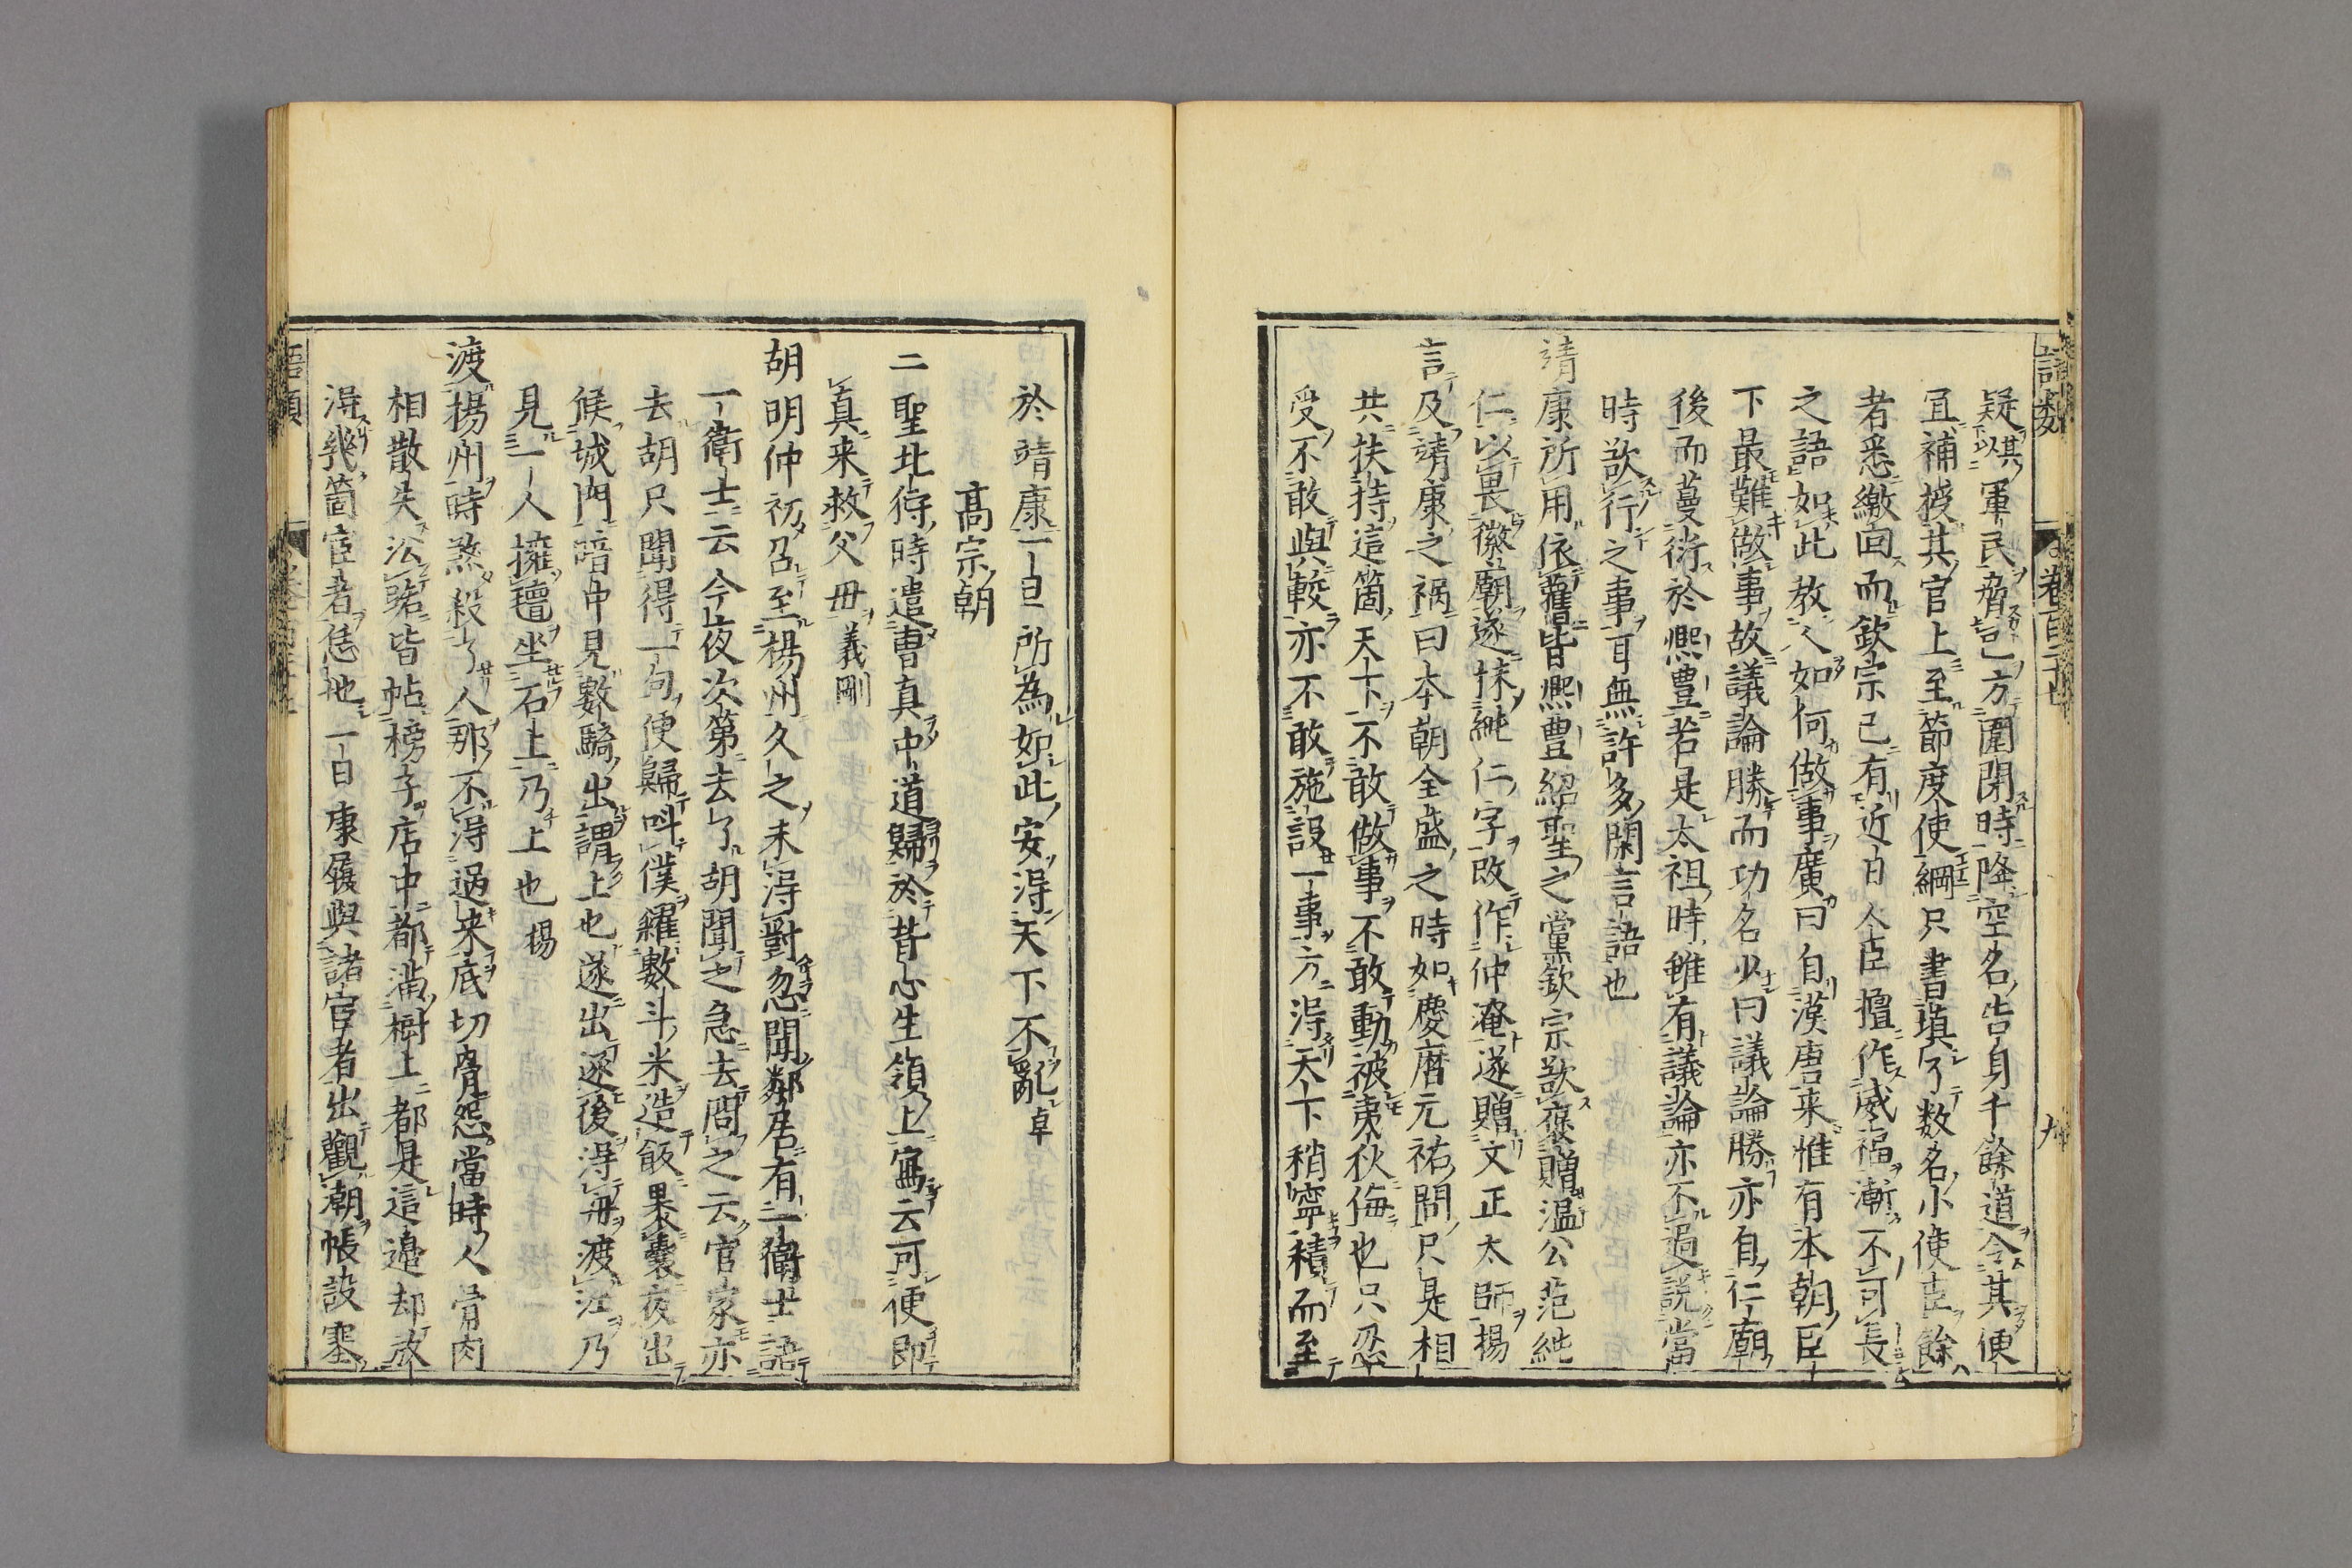 語類 卷百二十七 九
疑以其軍民脅己方圍閉時降空名告身千餘道令其便
冝補授其官上至節度使綱只書填了数名小使臣餘
者悉繳回而欽宗已有近日人臣擅作威福漸不可長
之語如此教人如何做事廣曰自漢唐来惟有本朝臣
下最難做事故議論勝而功名少曰議論勝亦自仁廟
後而蔓衍於熈豊若是太祖時雖有議論亦不過説當
時欲行之事耳無許多閑言語也
靖康所用依舊皆熈豊紹聖之黨欽宗欲褒贈温公范純
仁以畏徽廟遂抹純仁字改作仲淹遂贈文正太師揚
言及靖康之禍曰本朝全盛之時如慶暦元祐間只是相
共扶持這箇天下不敢做事不敢動被夷狄侮也只忍
受不敢與較亦不敢施設一事方得天下稍寧積而至
於靖康一旦所為如此安得天下不亂卓
髙宗朝
二聖北狩時遣曹真中道歸於背心生領上寫云可便即
真来救父母義剛
胡明仲初召至楊州久之未得對忽聞鄰居有一衛士語
一衛士云今夜次第去了胡聞之急去問之云官家亦
去胡只聞得一句便歸呌僕糴數斗米造飯果囊夜出
候城門暗中見數騎出謂上也遂出逐後得舟渡江乃
見一人擁氊坐石上乃上也揚
渡揚州時煞殺了人那不得過来底切骨怨當時人骨肉
相散失沿路皆帖榜子店中都滿樹上都是這邉却放
得幾箇宦者恁地一日康履與諸宦者出觀潮帳設塞
語類